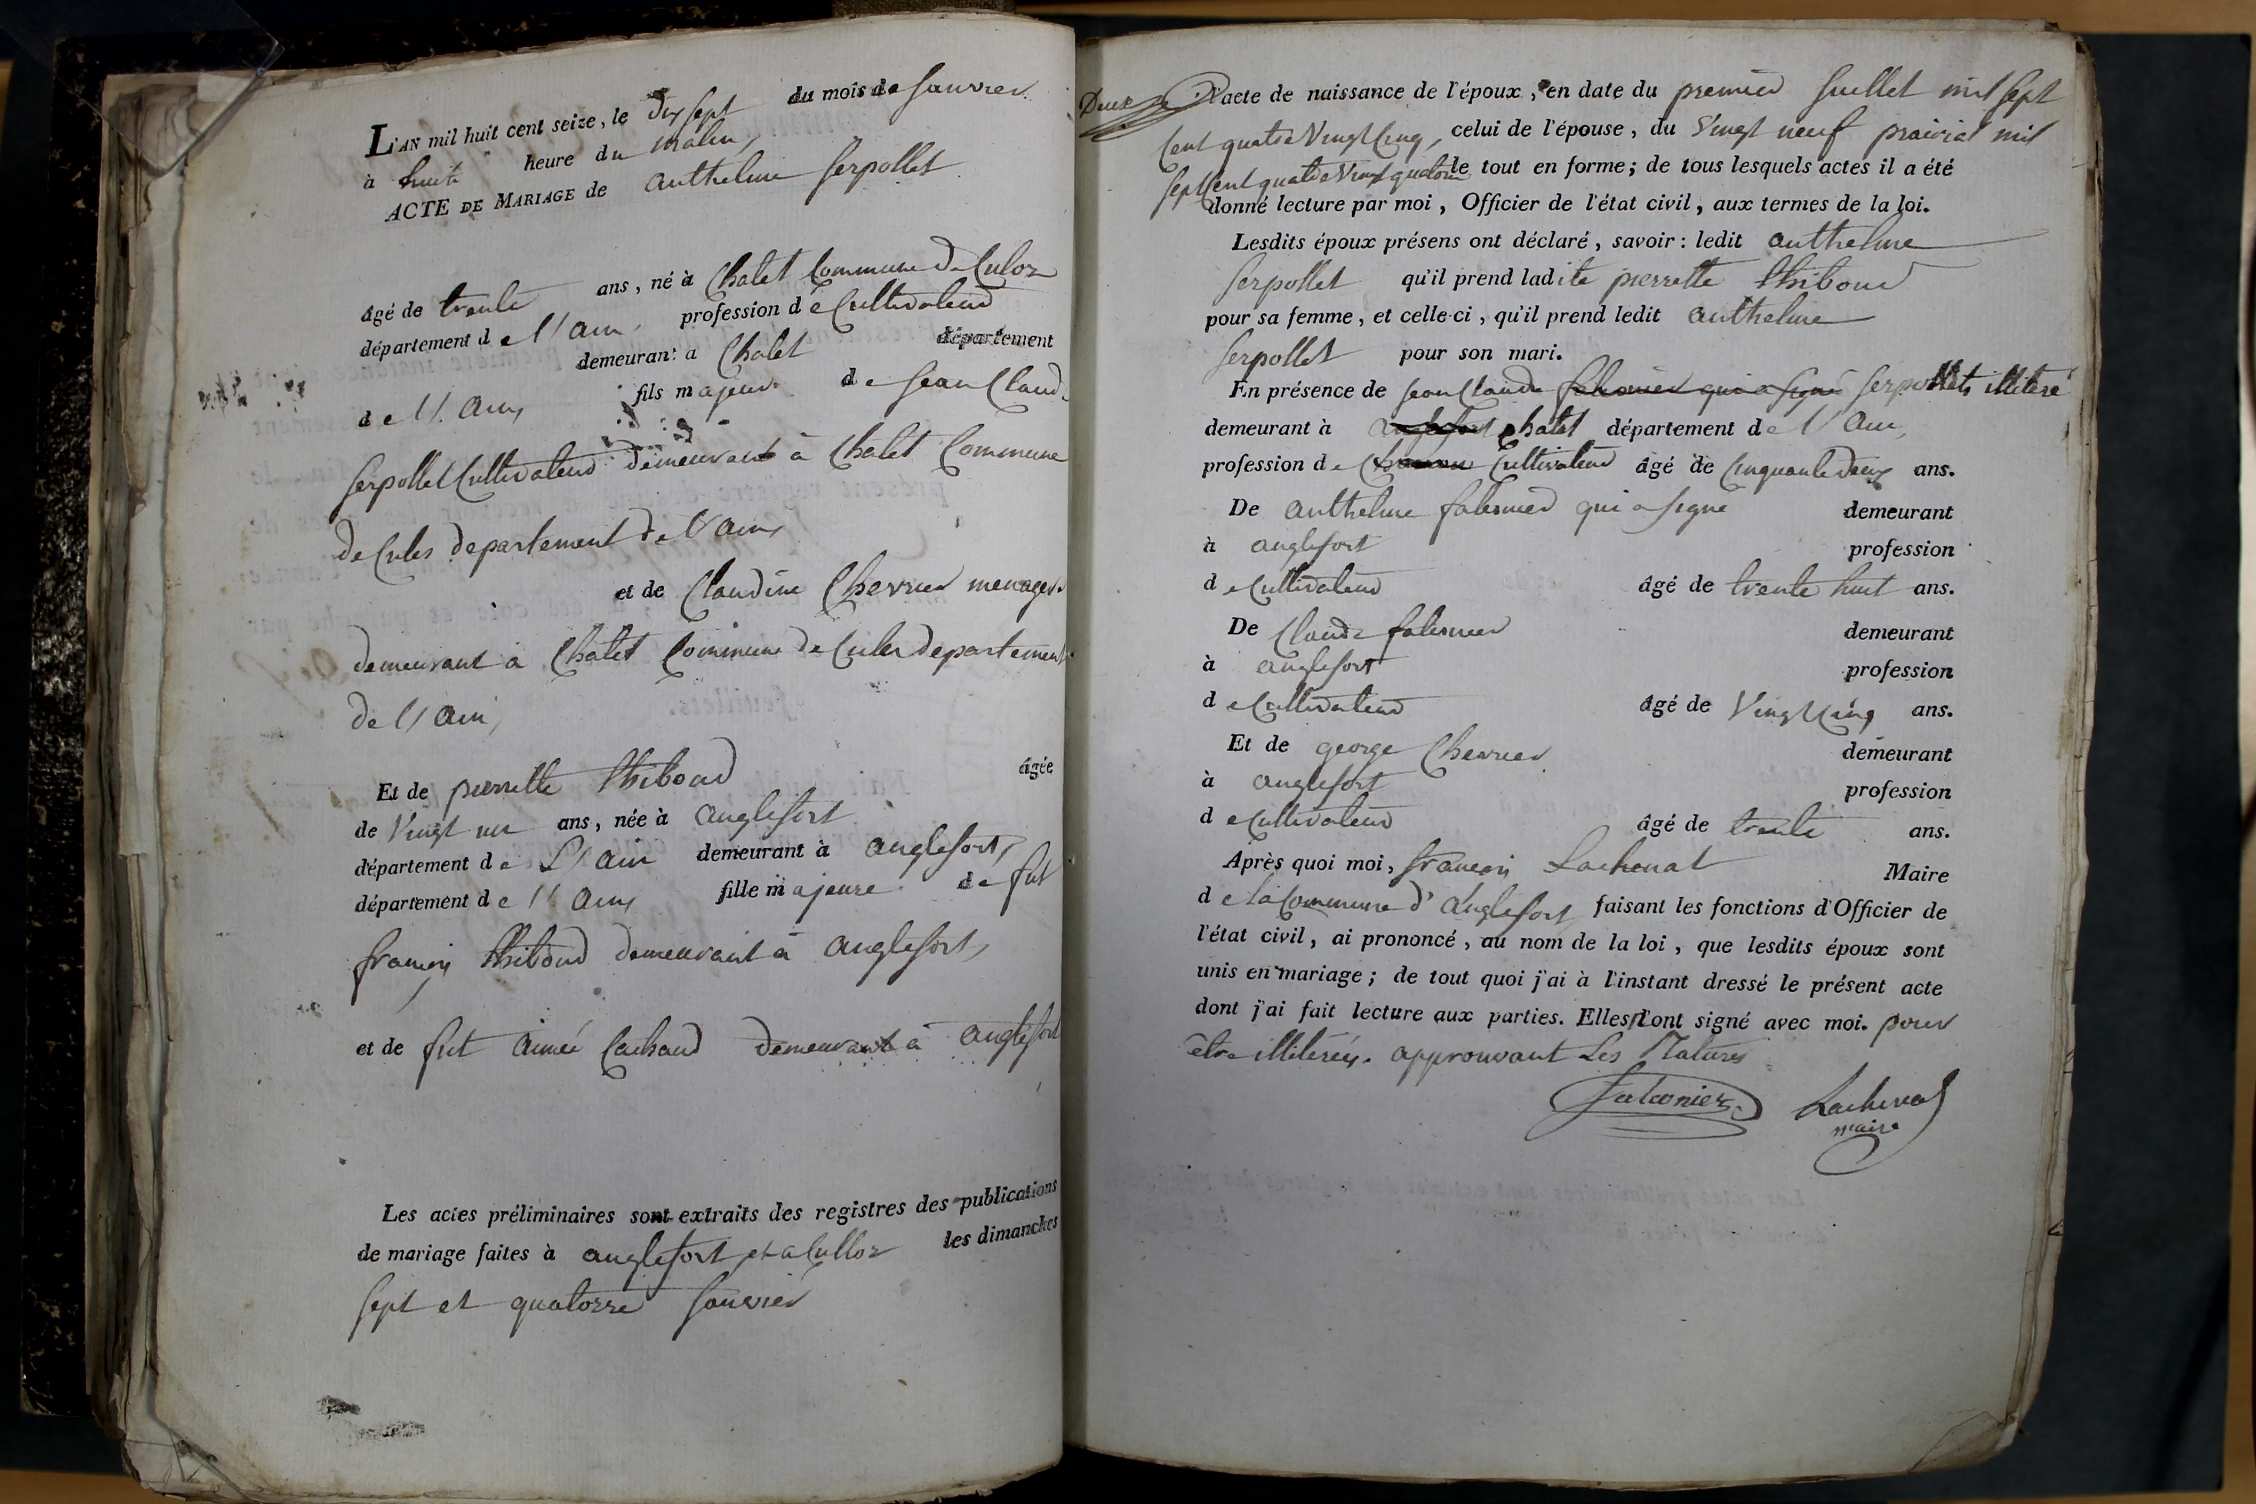 L'AN mil huit cent seize, le dix sept du mois de Janvier
à huit heure du matin,
ACTE DE MARIAGE de anthelme Serpollet
âgé de trente ans, né à Chatel Commune de Culoz
département de l'ain, profession de Cultivateur
demeurant a Chatel département
de l'ain, fils majeur de Jean Claude
Serpollet Cultivateur demeurant à Chatel Commune
de Cules departement de l'ain,
et de Claudine Chevrier menagere
demeurant à Chatel Commune de Cules departement
de l'ain,
Et de pierrette Thiboud âgée
de Vingt un ans, née à anglefort
département de L'ain demeurant à anglefort,
département de l'ain, fille majeure de fut
françois Thiboud demeurant à anglefort,
et de fut aimée Cachaud demeurant à anglefort
Les actes préliminaires sont extraits des registres des publications
de mariage faites à anglefort et a Culloz les dimanches
sept et quatorze Janvier
Deux
l'acte de naissance de l'époux, en date du premier Juillet mil sept
Cent quatre Vingt Cinq, celui de l'épouse, du Vingt neuf prairial mil
sept Cent quatre Vingt quatorze le tout en forme; de tous lesquels actes il a été
donné lecture par moi, Officier de l'état civil, aux termes de la loi.
Lesdits époux présens ont déclaré, savoir: ledit anthelme
Serpollet qu'il prend ladite pierrette Thiboud
pour sa femme, et celle-ci, qu'il prend ledit anthelme
Serpollet pour son mari.
En présence de Jean Claude falconier qui a signé Serpollet, illiteré
demeurant à anglefort Chatel département de l'ain,
profession de Cultivateur âgé de Cinquante deux ans.
De anthelme falconier qui a signé demeurant
à anglefort profession
de Cultivateur âgé de trente huit ans.
De Claude falconier demeurant
à anglefort profession
de Cultivateur âgé de Vingt Cinq ans.
Et de george Chevrier demeurant
à anglefort profession
de Cultivateur âgé de trente ans.
Après quoi moi, françois Lachenal Maire
de la Commune d'anglefort, faisant les fonctions d'Officier de
l'état civil, ai prononcé, au nom de la loi, que lesdits époux sont
unis en mariage; de tout quoi j'ai à l'instant dressé le présent acte
dont j'ai fait lecture aux parties. Elles n'ont signé avec moi. pour
être illiterés. approuvant Les Ratures
falconier Lachenal
maire